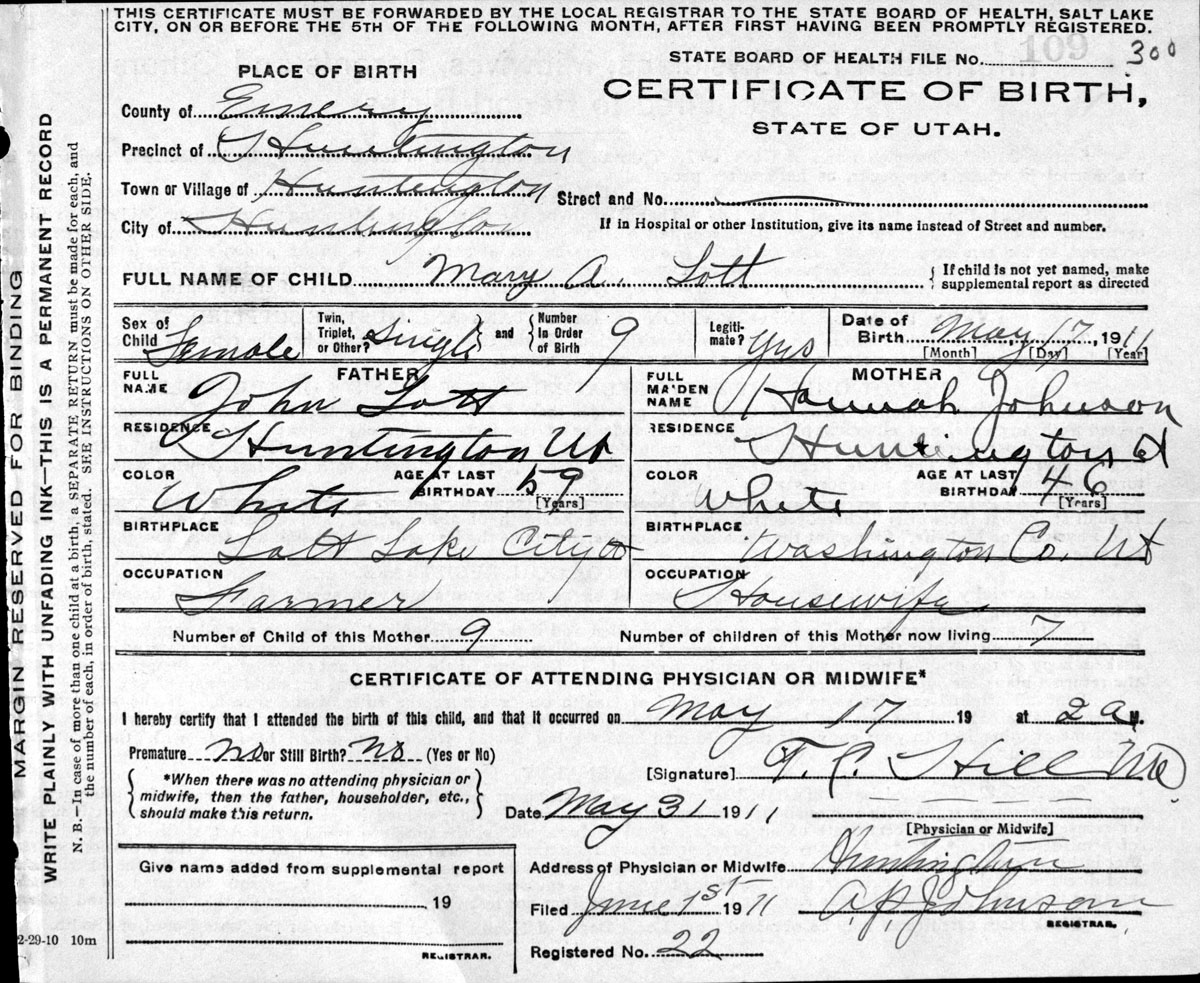 THIS CERTIFICATE MUST BE FORWARDED BY THE LOCAL REGISTRAR TO THE STATE BOARD OF HEALTH, SALT LAKE
CITY, ON OR BEFORE THE 5TH OF THE FOLLOWING MONTH, AFTER FIRST HAVING BEEN PROMPTLY REGISTERED.
109
STATE BOARD OF HEALTH FILE No. 300
PLACE OF BIRTH
CERTIFICATE OF BIRTH,
STATE OF UTAH.
County of Emery
Precinct of Huntington
Town or Village of Huntington
Street and No.
City of Huntington
If in Hospital or other Institution, give its name instead of Street and number.
FULL NAME OF CHILD Mary A. Lott
{ If child is not yet named, make
supplemental report as directed
Sex of Child Female
Twin, Triplet, or Other? Single } and { Number In Order of Birth 9
Legitimate? Yes
Date of Birth May 17, 1911
[Month] [Day] [Year]
FATHER
FULL NAME John Lott
RESIDENCE Huntington Ut
COLOR White AGE AT LAST BIRTHDAY 59 [Years]
BIRTHPLACE Salt Lake City Ut
OCCUPATION Farmer
MOTHER
FULL MAIDEN NAME Hannah Johnson
RESIDENCE Huntington Ut
COLOR White AGE AT LAST BIRTHDAY 46 [Years]
BIRTHPLACE Washington Co. Ut
OCCUPATION Housewife
Number of Child of this Mother 9 Number of children of this Mother now living 7
CERTIFICATE OF ATTENDING PHYSICIAN OR MIDWIFE*
I hereby certify that I attended the birth of this child, and that it occurred on May 17 19 at 2 a M.
Premature No or Still Birth? No (Yes or No)
{ *When there was no attending physician or
midwife, then the father, householder, etc.,
should make this return. }
[Signature] T. C. Hill MD
Date May 31 1911
[Physician or Midwife]
Give name added from supplemental report
19
REGISTRAR.
Address of Physician or Midwife Huntington
Filed June 1st 1911 Johnson
REGISTRAR.
Registered No. 22
2-29-10 10m
MARGIN RESERVED FOR BINDING
WRITE PLAINLY WITH UNFADING INK—THIS IS A PERMANENT RECORD
N. B.—In case of more than one child at a birth, a SEPARATE RETURN must be made for each, and
the number of each, in order of birth, stated. SEE INSTRUCTIONS ON OTHER SIDE.